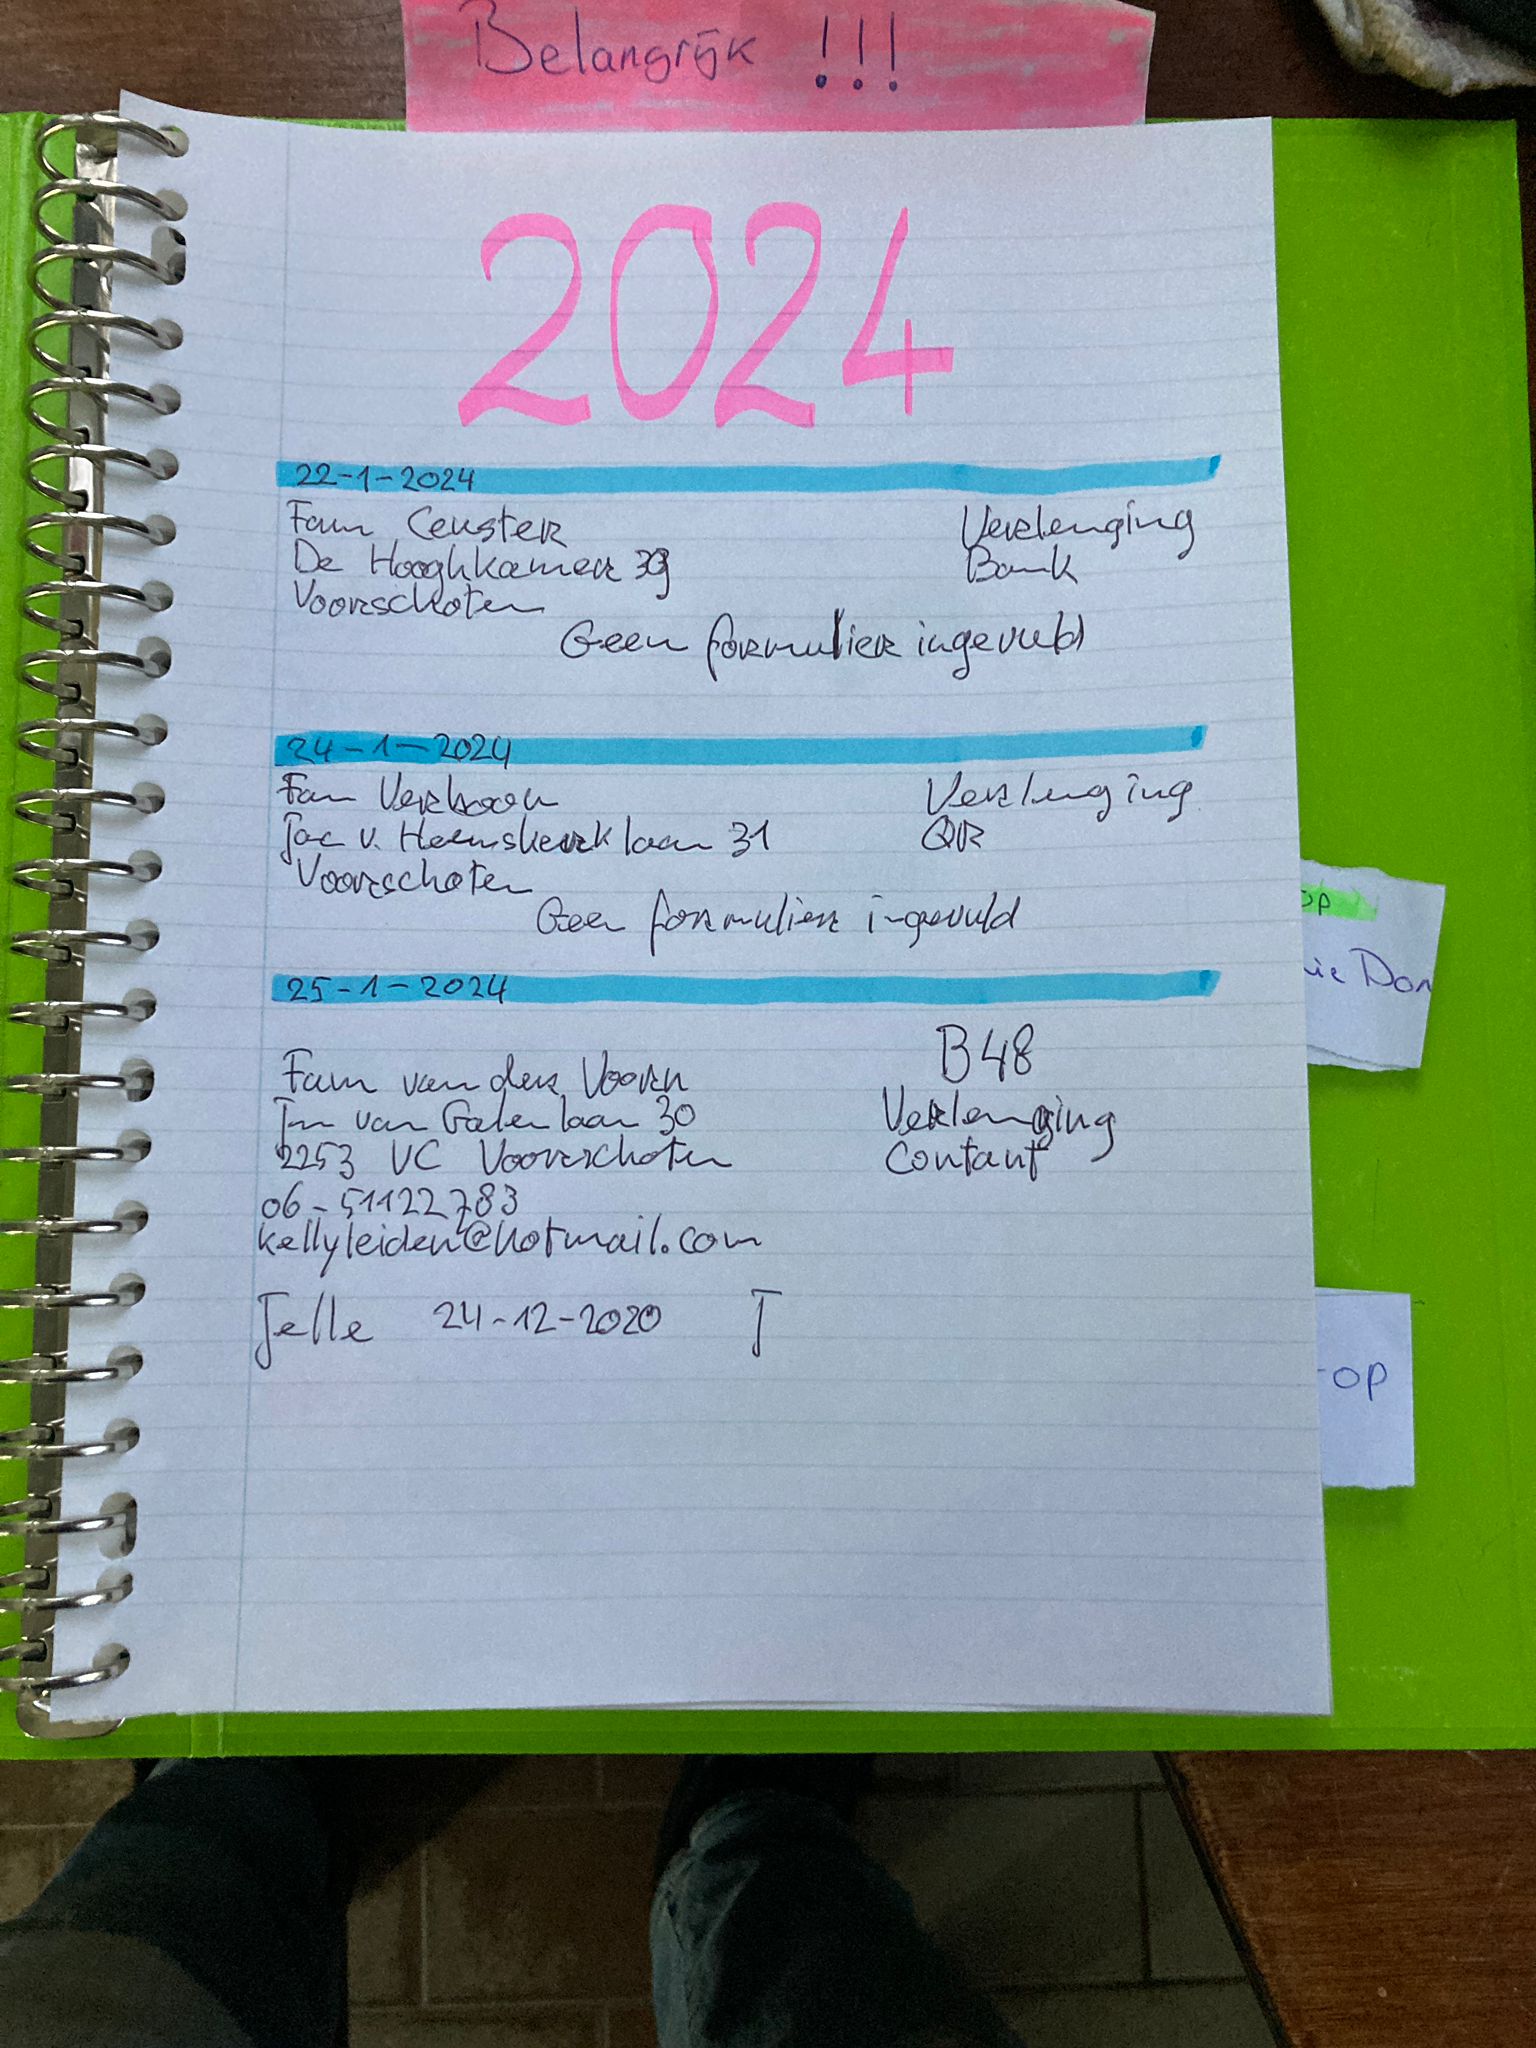 Belangrijk !!!
2024
22-1-2024
Fam Ceuster Verlenging
De Hooghkamer 39 Bank
Voorschoten
Geen formulier ingevuld
24-1-2024
Fam Verboon Verlenging
Jac v. Heemskerklaan 31 QR
Voorschoten
Geen formulier ingevuld
25-1-2024
B48
Fam van der Voorn
van Galenlaan 30 Verlenging
2253 VC Voorschoten Contant
06-51122783
kellyleiden@hotmail.com
Jelle 24-12-2020 J
op
Don
op